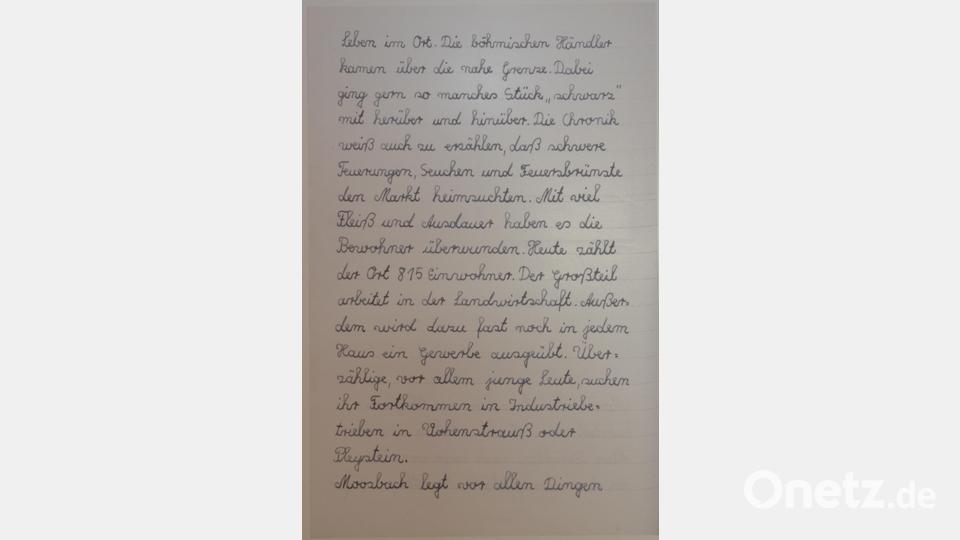 Leben im Ort. Die böhmischen Händler
kamen über die nahe Grenze. Dabei
ging gern so manches Stück „schwarz"
mit herüber und hinüber. Die Chronik
weiß auch zu erzählen, daß schwere
Feuerungen, Seuchen und Feuersbrünste
den Markt heimsuchten. Mit viel
Fleiß und Ausdauer haben es die
Bewohner überwunden. Heute zählt
der Ort 815 Einwohner. Der Großteil
arbeitet in der Landwirtschaft. Außer-
dem wird dazu fast noch in jedem
Haus ein Gewerbe ausgeübt. Über=
zählige, vor allem junge Leute, suchen
ihr Fortkommen in Industriebe-
trieben in Vohenstrauß oder
Pleystein.
Moosbach legt vor allen Dingen
Onetz.de